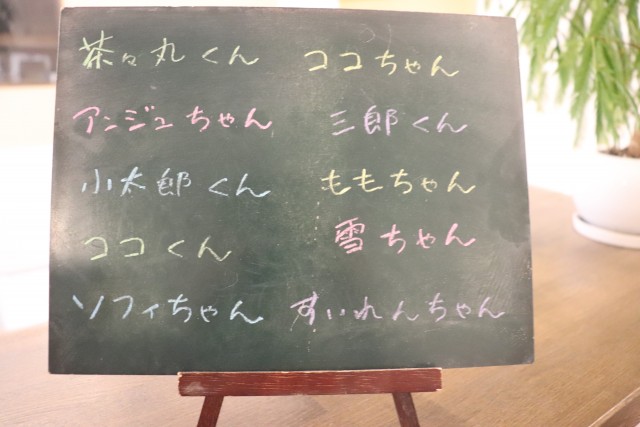 茶々丸くん ココちゃん
アンジュちゃん 三郎くん
小太郎くん ももちゃん
ココくん 雪ちゃん
ソフィちゃん すいれんちゃん